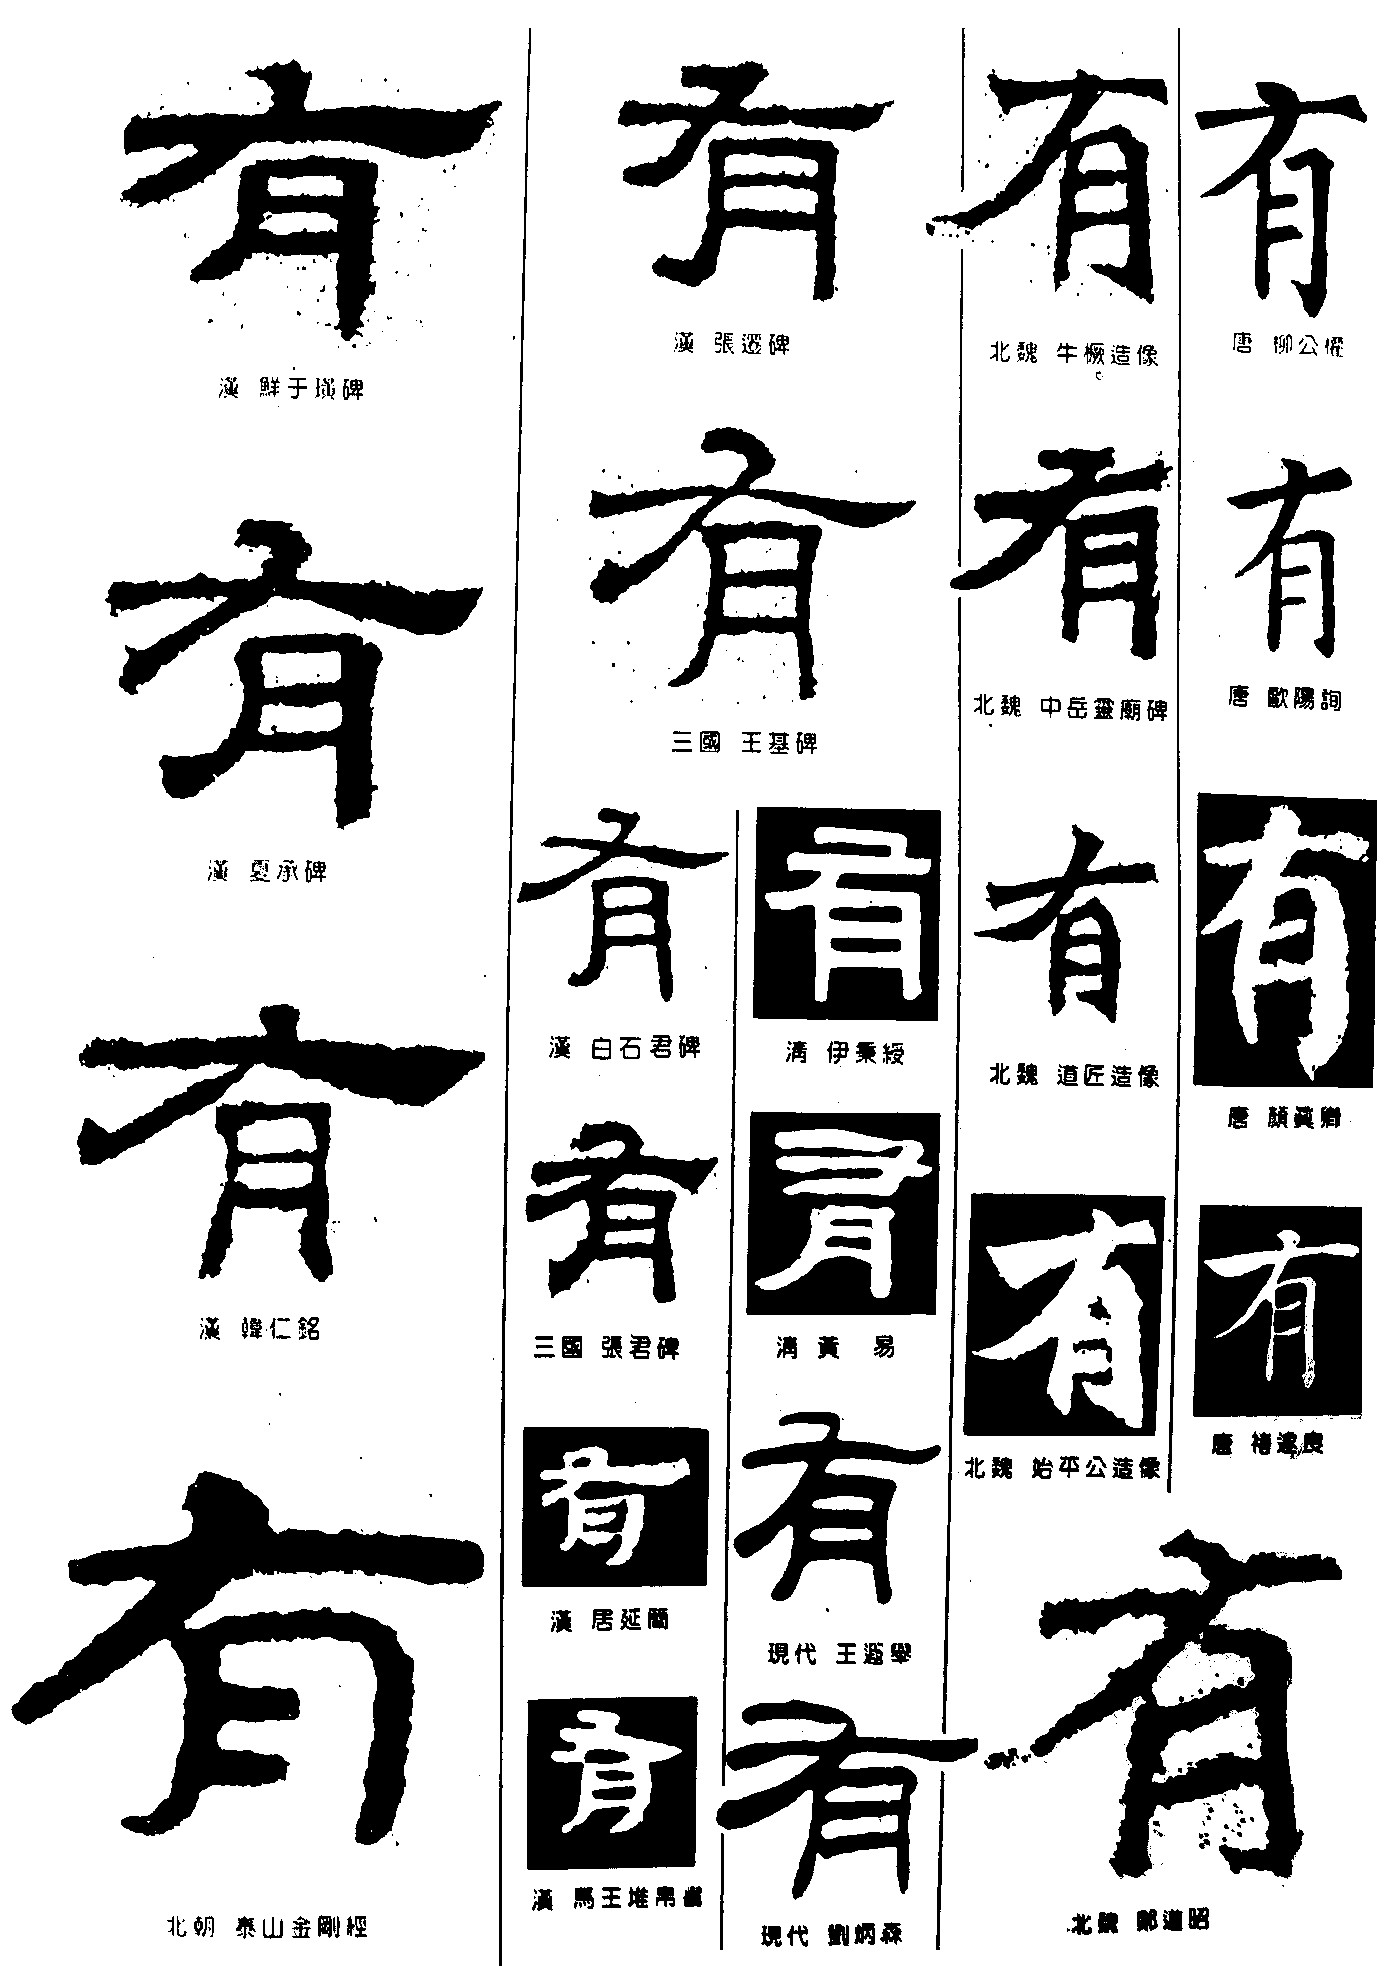 有
漢 鮮于璜碑
有
漢 夏承碑
有
漢 韓仁銘
有
北朝 泰山金剛經
有
漢 張遷碑
有
三國 王基碑
有
漢 白石君碑
有
三國 張君碑
有
漢 居延簡
有
漢 馬王堆帛書
有
清 伊秉綬
有
清 黃 易
有
現代 王遐舉
有
現代 劉炳森
有
北魏 牛橛造像
有
北魏 中岳靈廟碑
有
北魏 道匠造像
有
北魏 始平公造像
有
唐 柳公權
有
唐 歐陽詢
有
唐 顏真卿
有
唐 褚遂良
有
北魏 鄭道昭